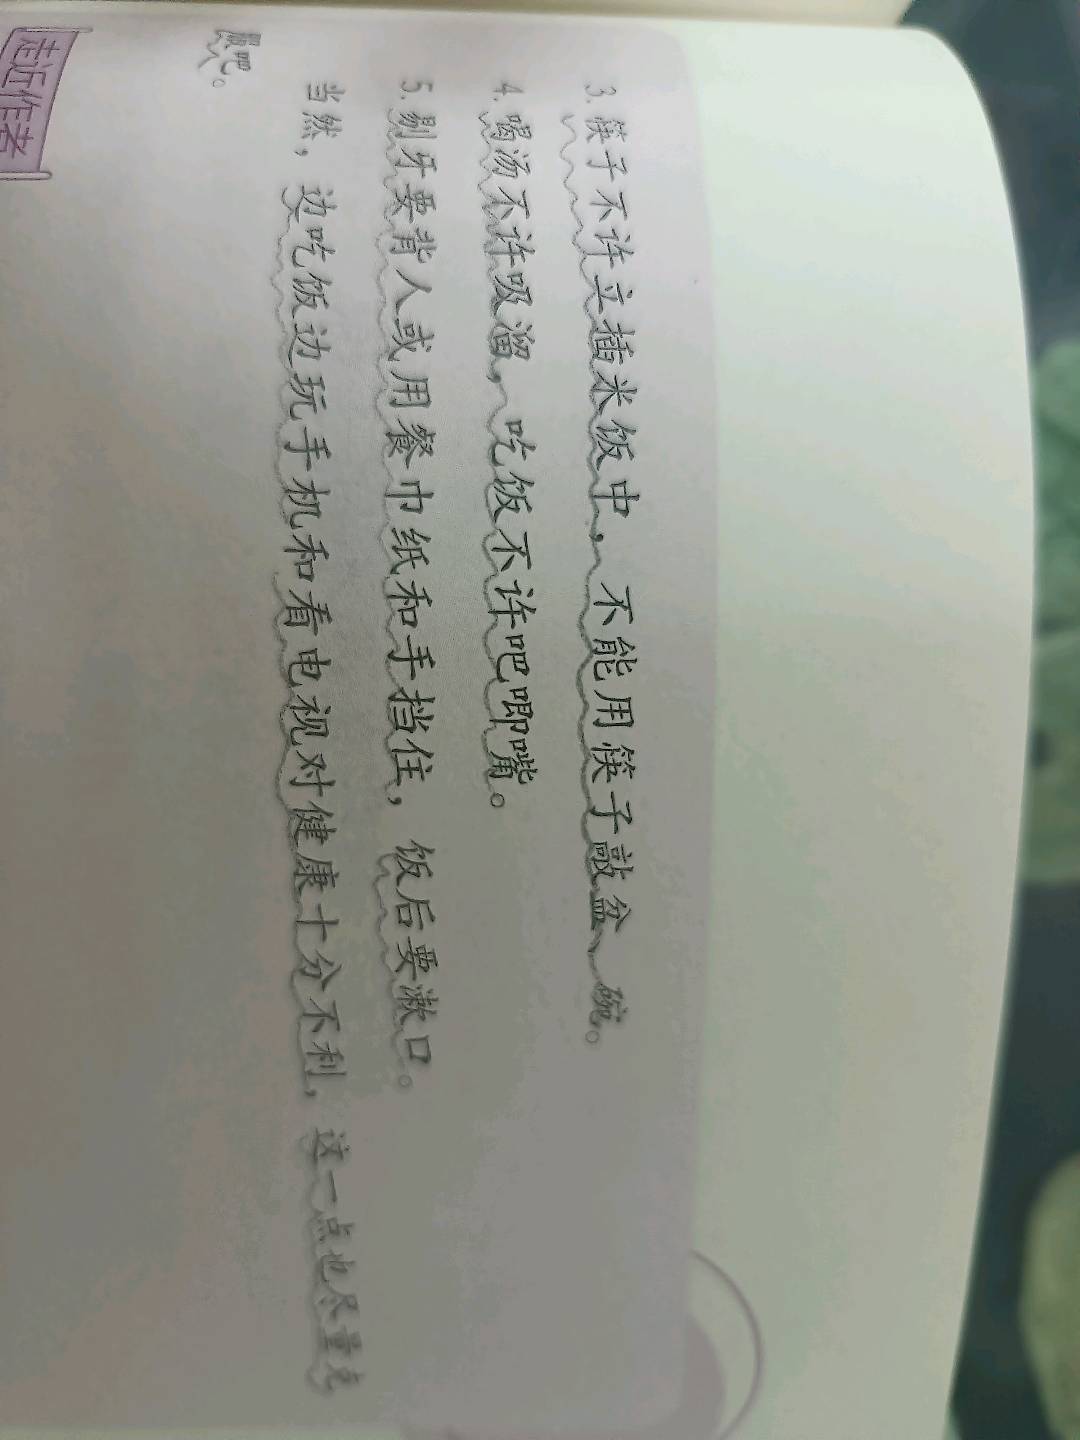 3. 筷子不许立插米饭中，不能用筷子敲盆、碗。
4. 喝汤不许吸溜，吃饭不许吧唧嘴。
5. 剔牙要背人或用餐巾纸和手挡住，饭后要漱口。
当然，边吃饭边玩手机和看电视对健康十分不利，这一点也尽量克
服吧。
走近作者